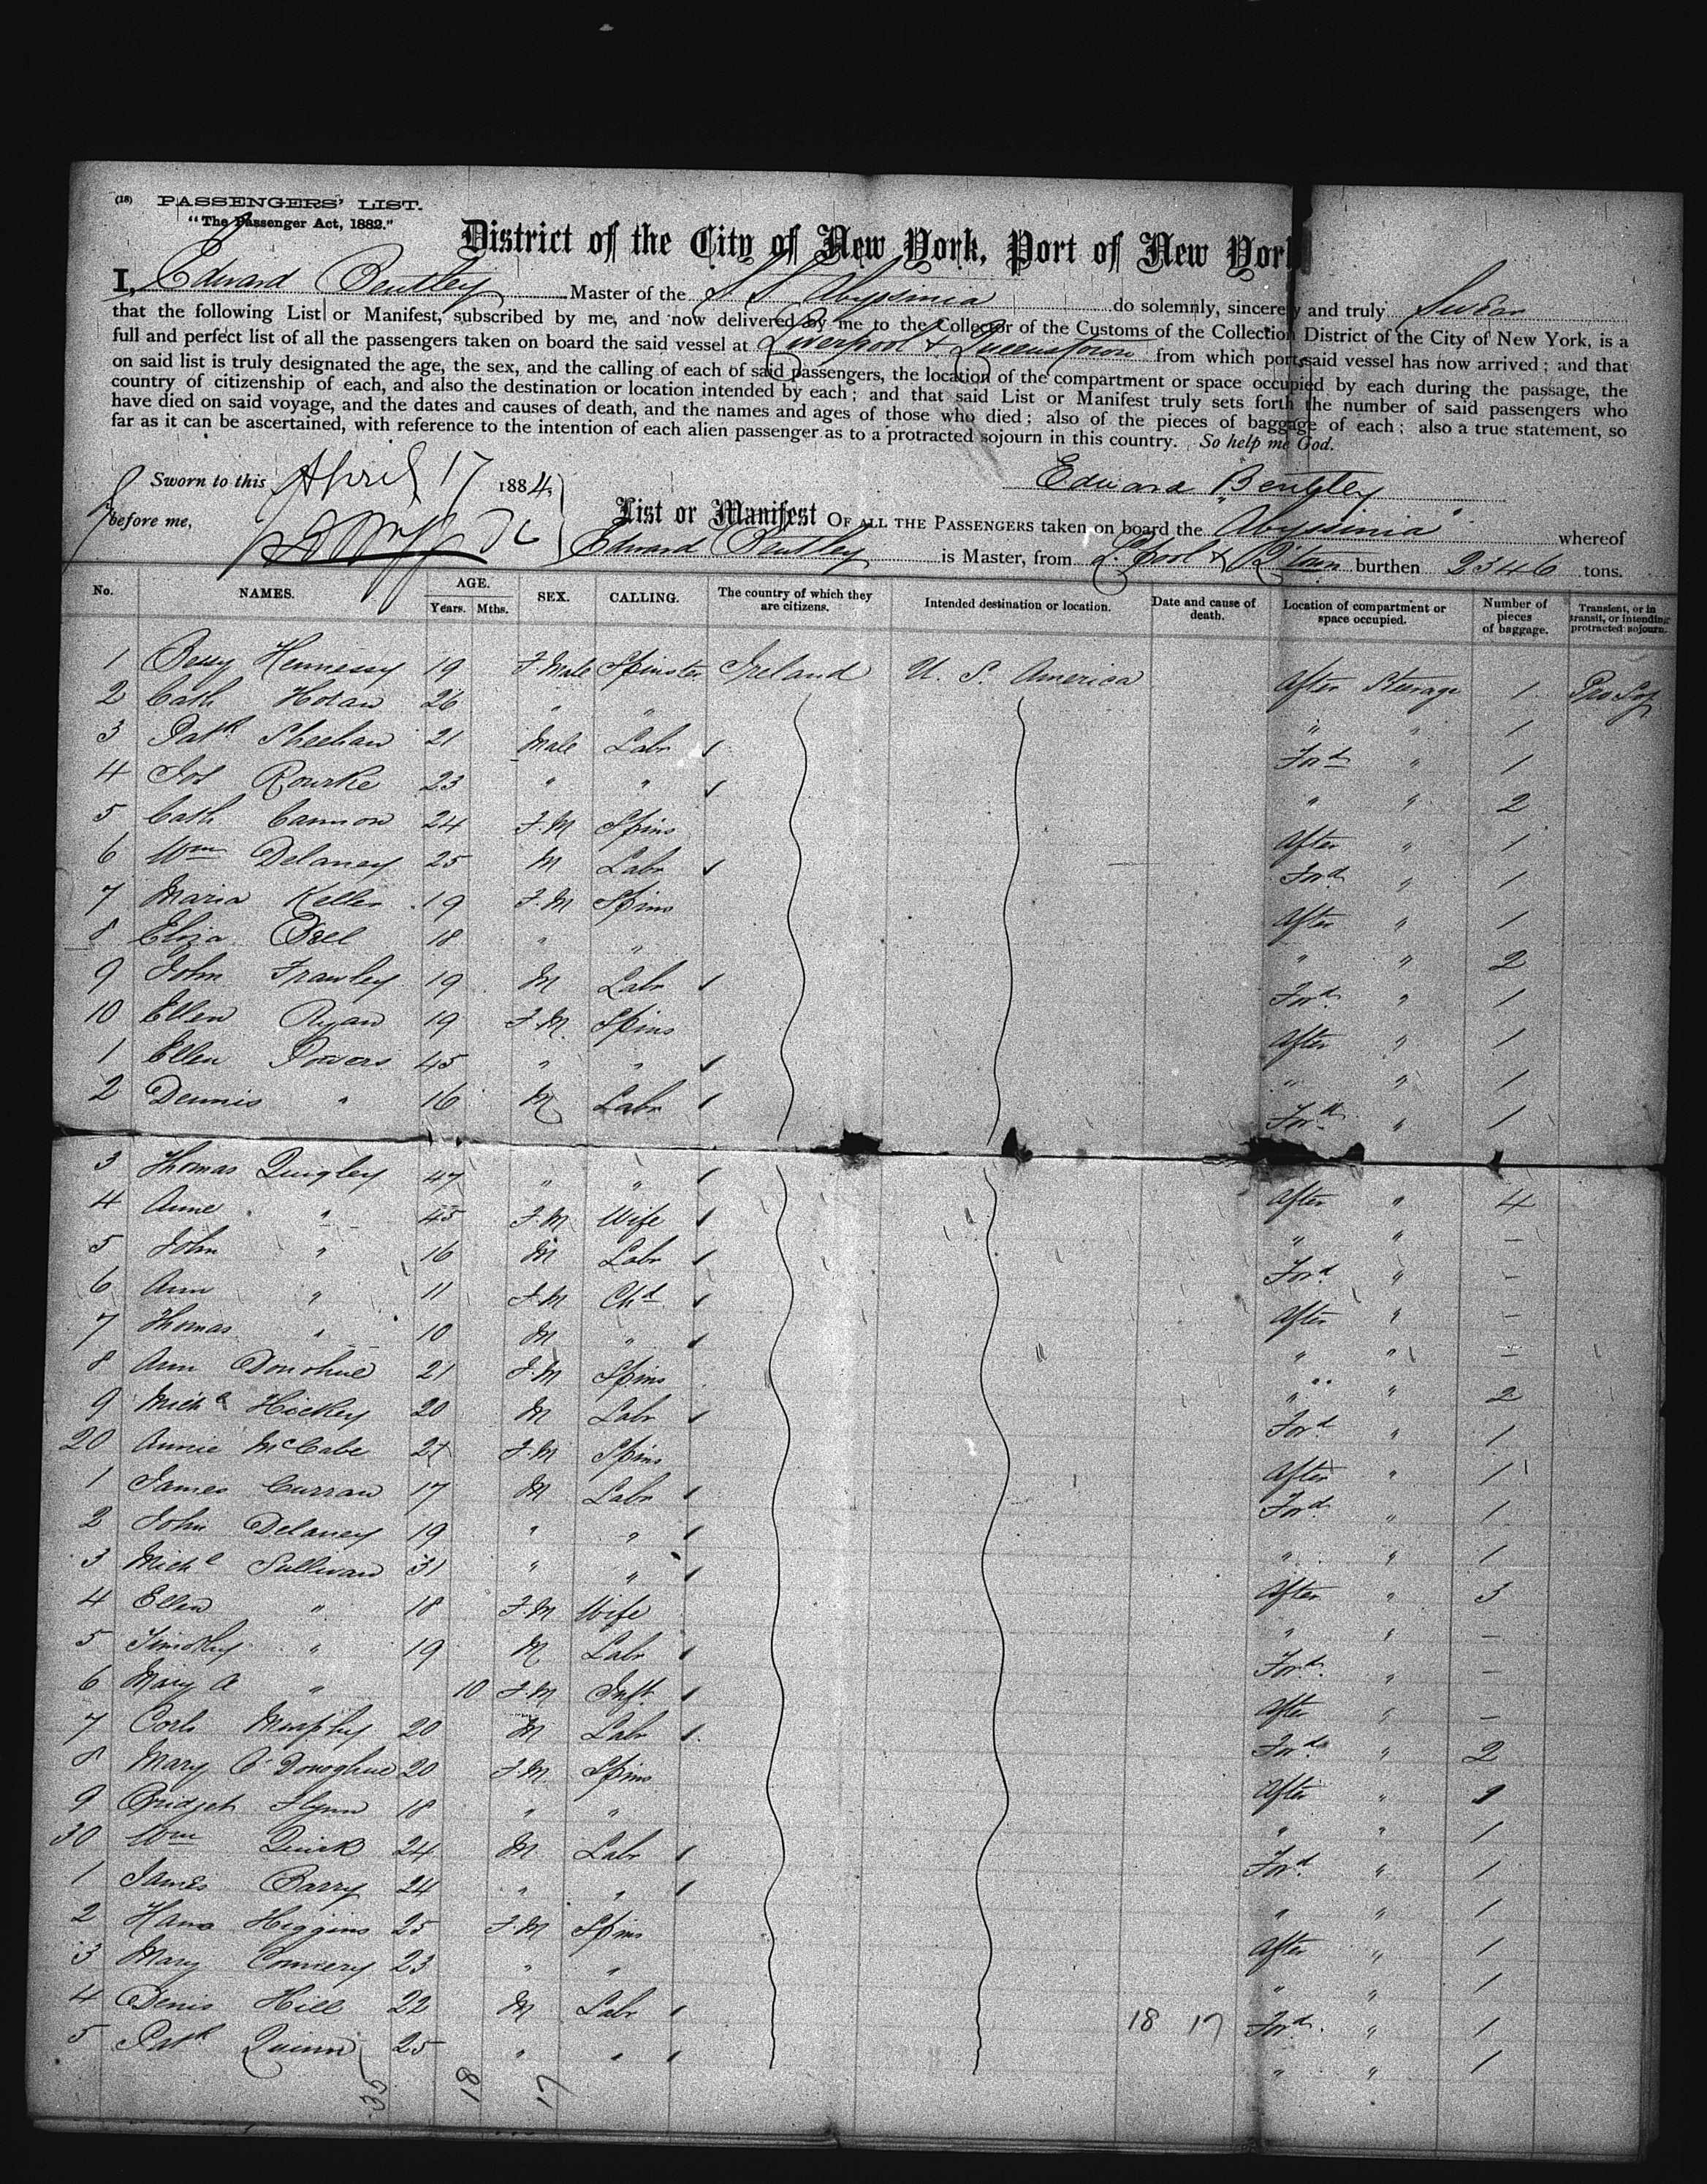 (18) PASSENGERS' LIST.
"The Passenger Act, 1882."
District of the City of New York, Port of New York
I, Edward Bentley Master of the S. S. Abyssinia do solemnly, sincerely and truly Swear
that the following List or Manifest, subscribed by me, and now delivered by me to the Collector of the Customs of the Collection District of the City of New York, is a
full and perfect list of all the passengers taken on board the said vessel at Liverpool & Queenstown from which port said vessel has now arrived; and that
on said list is truly designated the age, the sex, and the calling of each of said passengers, the location of the compartment or space occupied by each during the passage, the
country of citizenship of each, and also the destination or location intended by each; and that said List or Manifest truly sets forth the number of said passengers who
have died on said voyage, and the dates and causes of death, and the names and ages of those who died; also of the pieces of baggage of each; also a true statement, so
far as it can be ascertained, with reference to the intention of each alien passenger as to a protracted sojourn in this country. So help me God.
Sworn to this April 17 1884, Edward Bentley
before me,
List or Manifest OF ALL THE PASSENGERS taken on board the "Abyssinia" whereof
Edward Bentley is Master, from L'Pool & Q'town burthen 2346 tons.
No. NAMES. AGE. Years. Mths. SEX. CALLING. The country of which they are citizens. Intended destination or location. Date and cause of death. Location of compartment or space occupied. Number of pieces of baggage. Transient, or in transit, or intending protracted sojourn.
1 Bessy Hennessy 19 F.Male Spinster Ireland U. S. America After Steerage 1 Pro Soj
2 Cath Horan 26 " " " " 1
3 Patk Sheehan 21 Male Labr Ford " 1
4 Jos Rourke 23 " " " " 2
5 Cath Cannon 24 F.M Spins After " 1
6 Wm Delaney 25 M Labr Ford " 1
7 Maria Keller 19 F.M Spins After " 1
8 Eliza 18 " " " " 2
9 John Frawley 19 M Labr Ford " 1
10 Ellen Ryan 19 F.M. Spins After " 1
1 Ellen Powers 45 " " " " 1
2 Dennis " 16 M Labr Ford " 1
3 Thomas Quigley 47 " " After " 4
4 Anne " 45 F.M. Wife " " —
5 John " 16 M Labr Ford " —
6 Ann " 11 F.M Chd After " —
7 Thomas " 10 M " " " —
8 Ann Donohue 21 F.M Spins " " 2
9 Michl Hickey 20 M Labr Ford " 1
20 Annie McCabe 21 F.M Spins After " 1
1 James Curran 17 M Labr Ford " 1
2 John Delaney 19 " " " " 1
3 Michl Sullivan 31 " " After " 3
4 Ellen " 18 F.M Wife " " —
5 Timothy " 19 M Labr Ford " —
6 Mary A " 10 F.M Inft After " —
7 Corls Murphy 20 M Labr Ford " 2
8 Mary O'Donoghue 20 F.M. Spins After " 1
9 Bridget Flynn 18 " " " " 1
30 Wm Quirk 24 M Labr Ford " 1
1 James Barry 24 " " " " 1
2 Hana Higgins 25 F.M Spins After " 1
3 Mary 23 " " " " 1
4 Denis Hill 22 M Labr 18 17 Ford " 1
5 Patk Quinn 25 " " " " 1
35 18 17